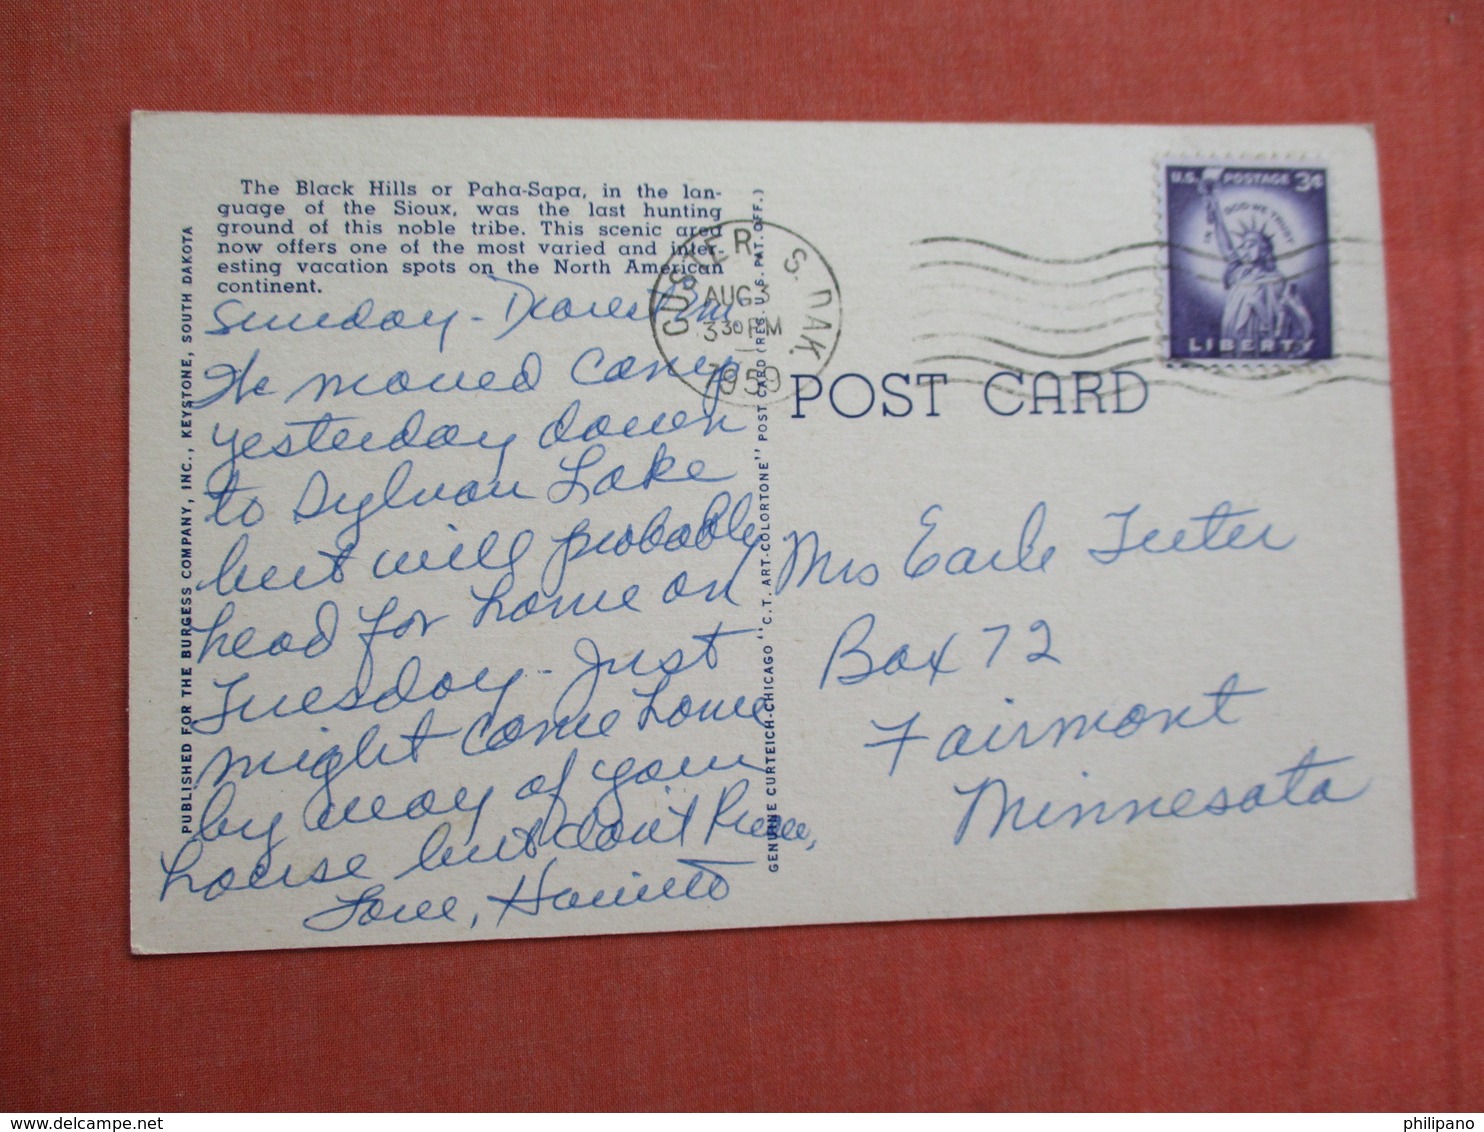 The Black Hills or Paha-Sapa, in the lan-
guage of the Sioux, was the last hunting
ground of this noble tribe. This scenic area
now offers one of the most varied and inter-
esting vacation spots on the North American
continent.
PUBLISHED FOR THE BURGESS COMPANY, INC., KEYSTONE, SOUTH DAKOTA
Sunday - Dearest
We moved camp
yesterday down
to Sylvan Lake
but will probably
head for home on
Tuesday - Just
might come home
by way of your
house but don't
Love, Harriett
GENUINE CURTEICH-CHICAGO "C.T. ART-COLORTONE" POST CARD (REG. U.S. PAT. OFF.)
CUSTER S. DAK.
AUG 3
3 30 PM
1959
U.S. POSTAGE 3¢
IN GOD WE TRUST
LIBERTY
POST CARD
Mrs Earle Teeter
Box 72
Fairmont
Minnesota
philipano